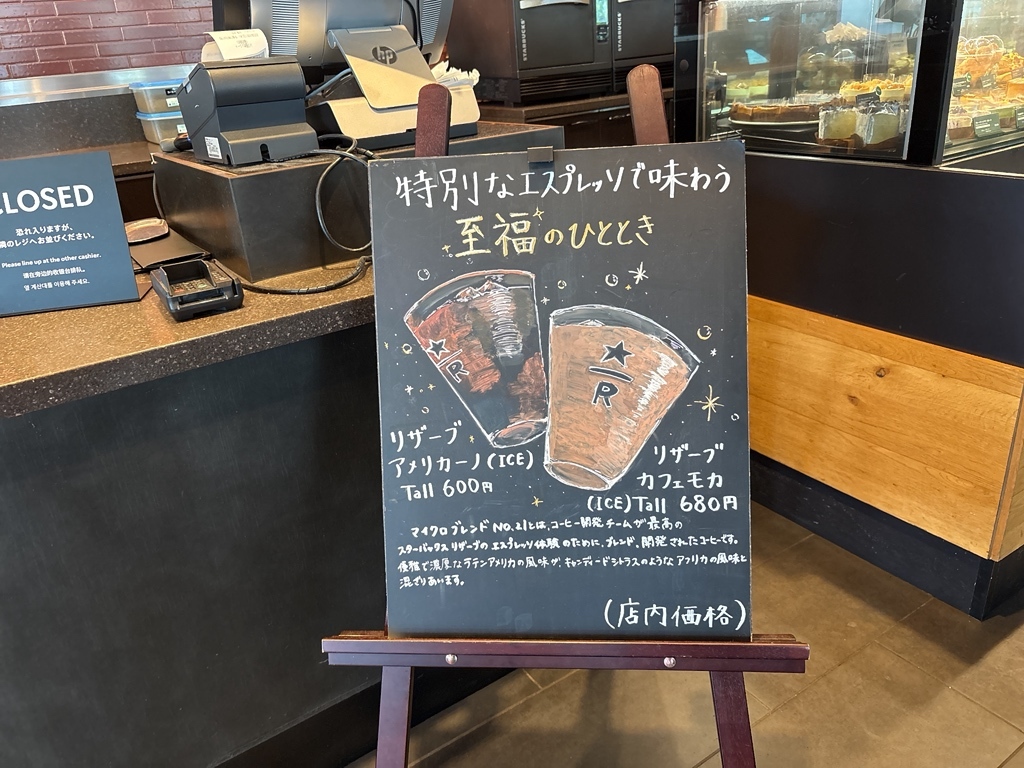 CLOSED
恐れ入りますが、
隣のレジへお並びください。
Please line up at the other cashier.
请在旁边的收银台排队。
옆 계산대를 이용해 주세요.
hp
STARBUCKS
STARBUCKS
特別なエスプレッソで味わう
至福のひととき
R
R
リザーブ
アメリカーノ(ICE)
Tall 600円
リザーブ
カフェモカ
(ICE)Tall 680円
マイクロブレンドNO.21とは、コーヒー開発チームが最高の
スターバックスリザーブのエスプレッソ体験のために、ブレンド、開発されたコーヒーです。
優雅で濃厚なラテンアメリカの風味が、キャンディードシトラスのようなアフリカの風味と
混ざりあいます。
(店内価格)